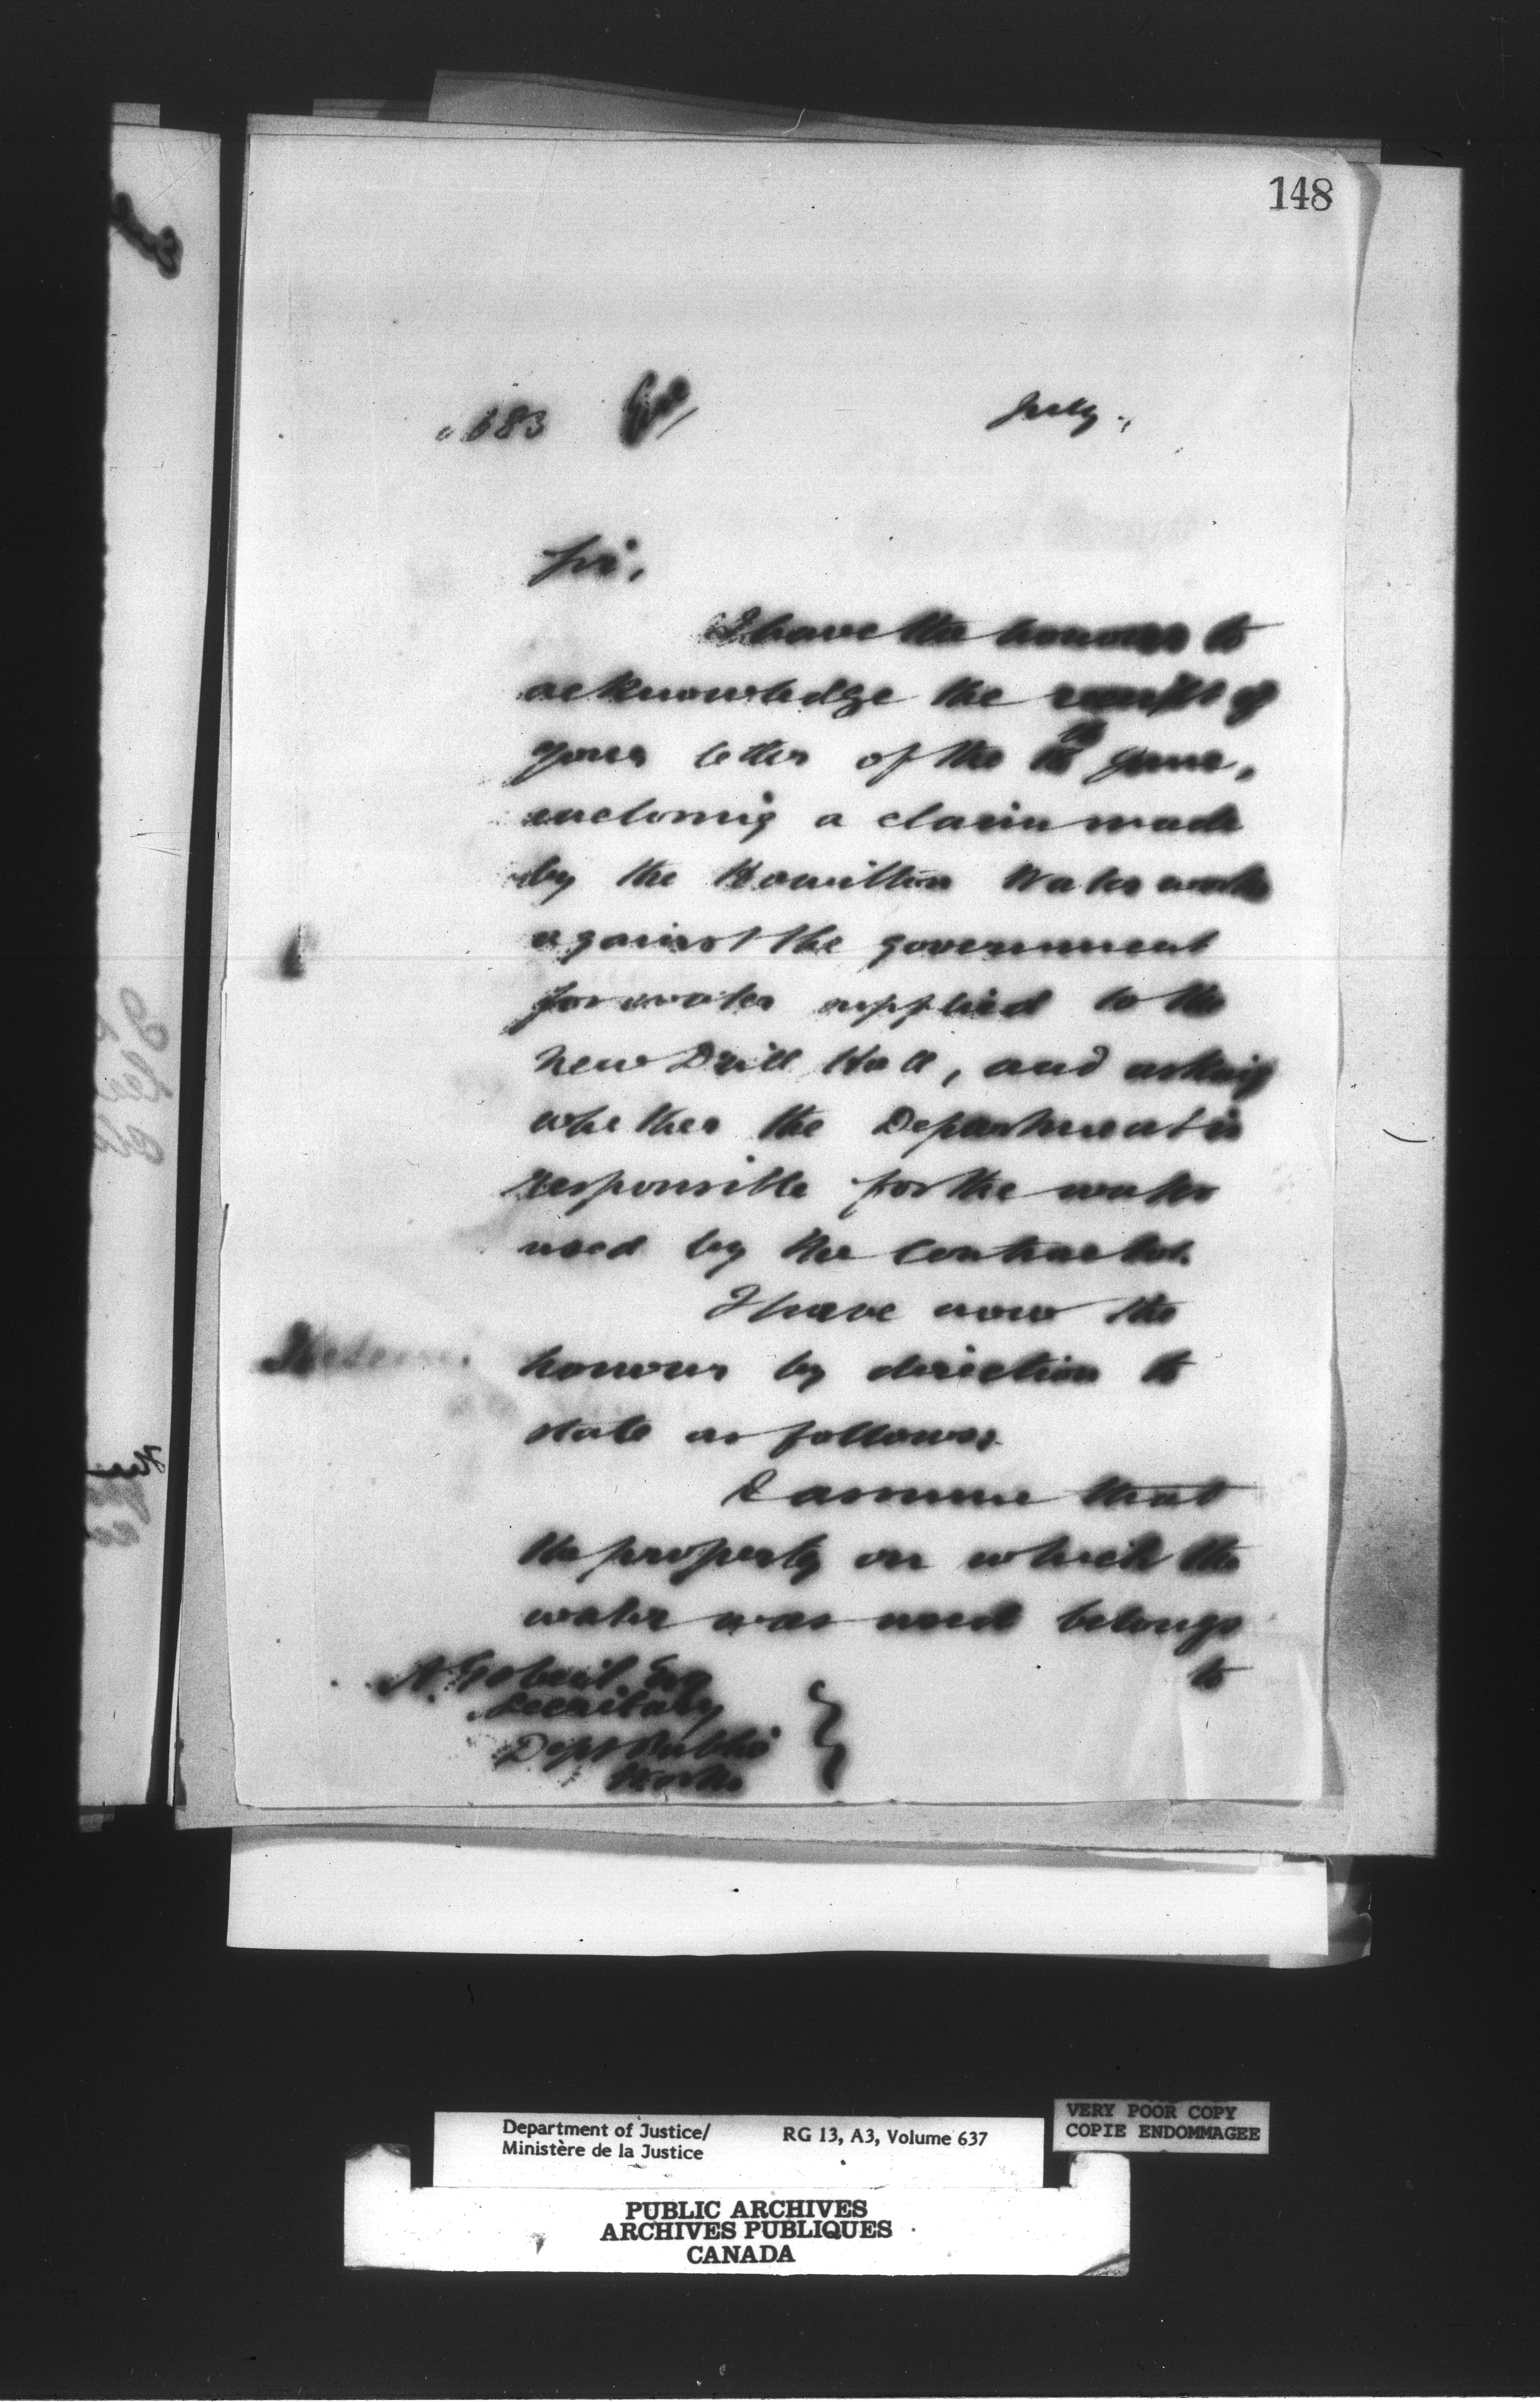 148
683
July.,
Sir,
I have the honour to
acknowledge the receipt of
your letter of the June,
enclosing a claim made
by the Hamilton Water works
against the government
for water supplied to the
new Drill Hall, and asking
whether the Department is
responsible for the water
used by the contractor.
I have now the
honour by direction to
state as follows,
I assume that
the property on which the
water was used belongs
to
A. Gobeil Esq
Secretary
Dept Public
Works
Department of Justice/
Ministère de la Justice
RG 13, A3, Volume 637
VERY POOR COPY
COPIE ENDOMMAGEE
PUBLIC ARCHIVES
ARCHIVES PUBLIQUES
CANADA